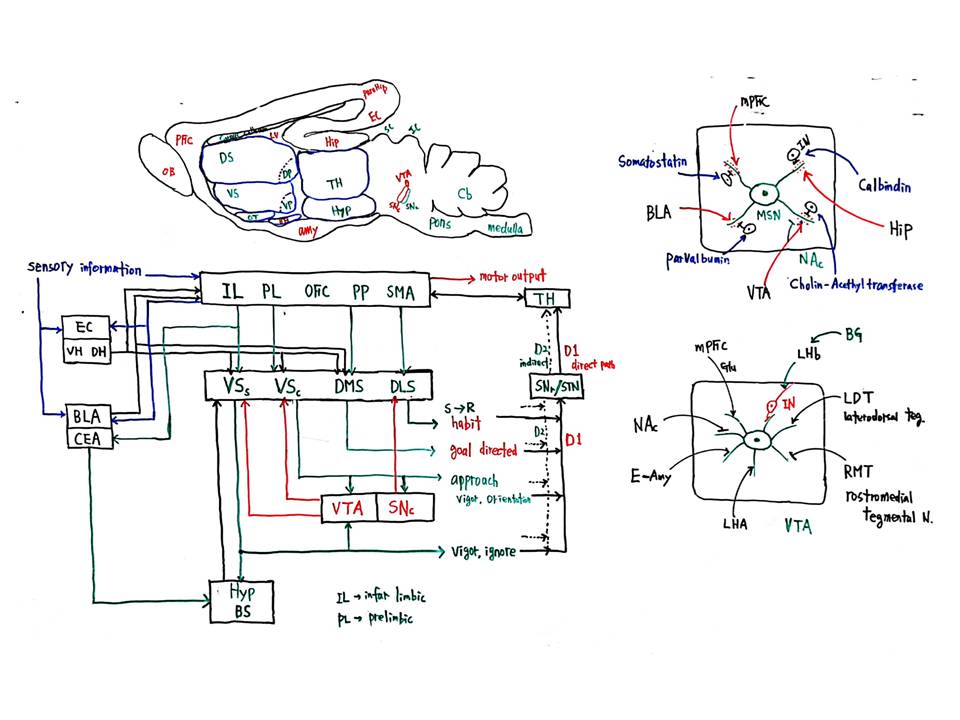 OB
PFC
corpus callosum
LV
Hip
parahip
EC
SC
IC
DS
DP
VS
VP
OT
TH
Hyp
amy
VTA
SNc
SNr
Cb
pons
medulla
sensory information
IL PL OFC PP SMA
motor output
TH
EC
VH DH
VSs VSc DMS DLS
D2
indirect
D1
direct path
SNr/STN
BLA
CEA
S→R
habit
D2
D1
goal directed
approach
vigor, orientation
VTA SNc
vigor, ignore
Hyp
BS
IL → infar limbic
PL → prelimbic
mPFC
IN
Somatostatin
Calbindin
BLA
MSN
Hip
parvalbumin
NAc
VTA
Cholin-Acethyl transferase
BG
mPFC
Glu
LHb
IN
LDT
laterodorsal teg.
NAc
E-Amy
RMT
rostromedial
tegmental N.
LHA
VTA